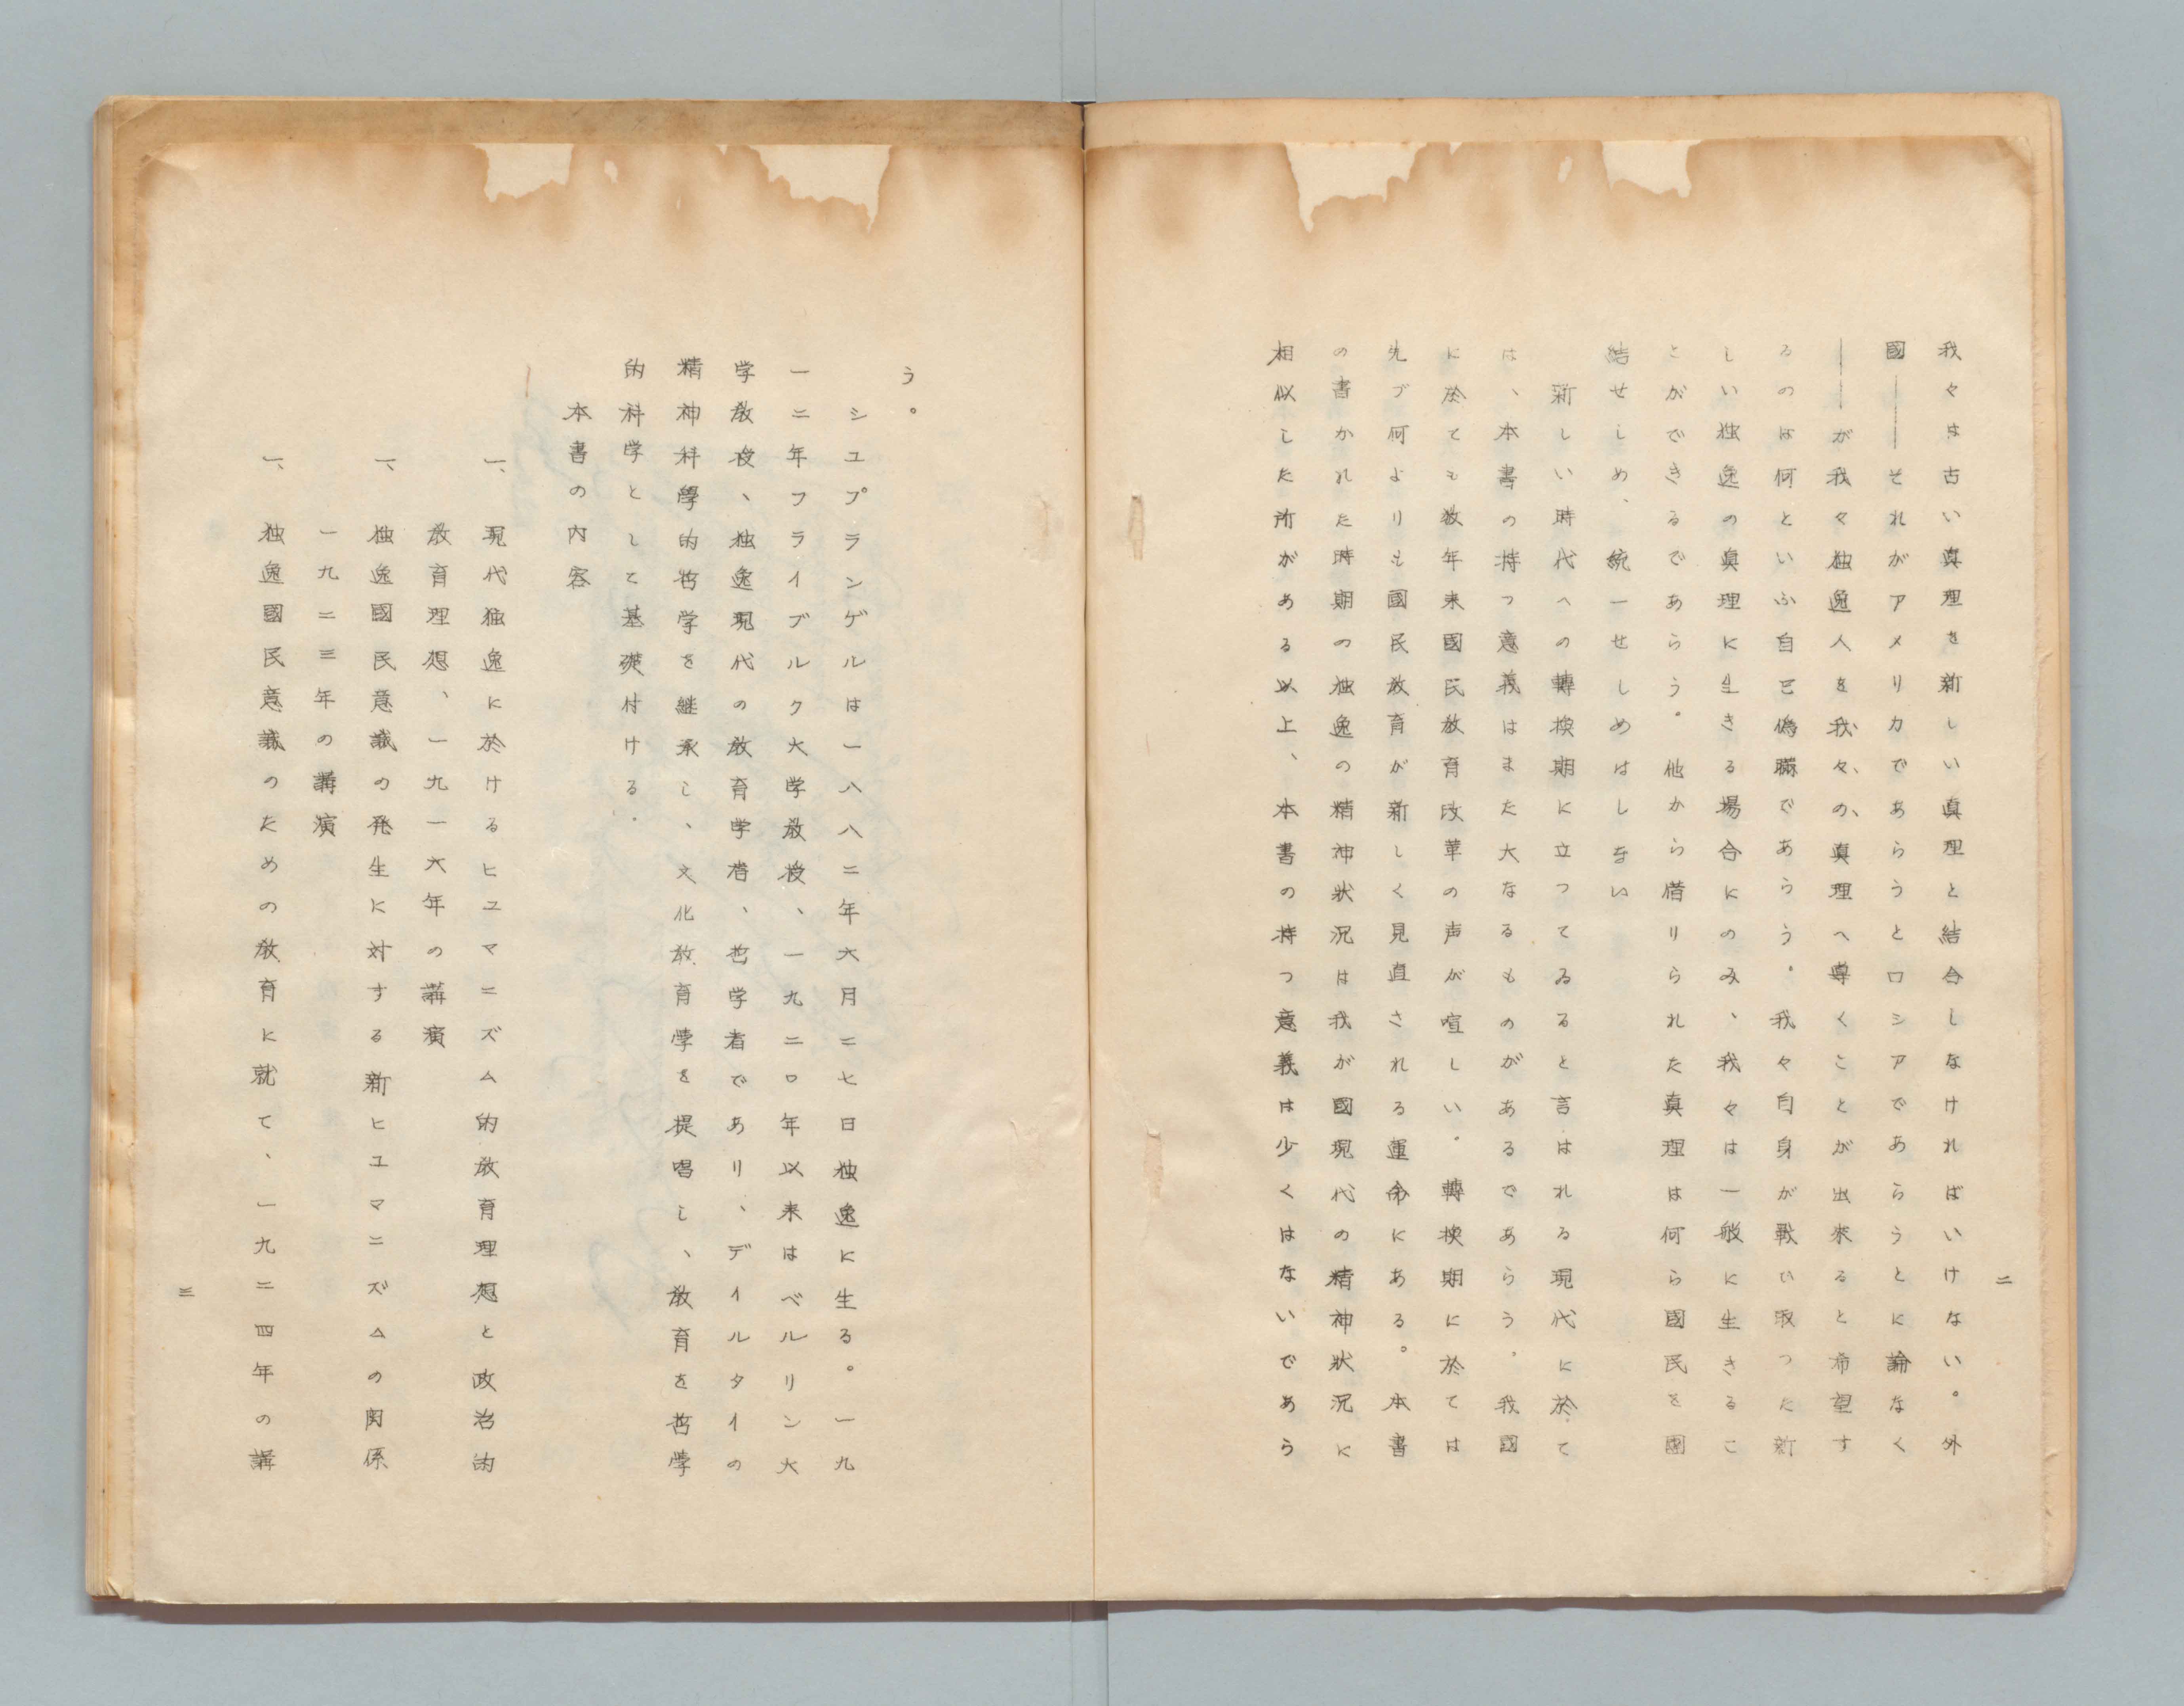 二
我々は古い真理を新しい真理と結合しなければいけない。外
國――それがアメリカであらうとロシアであらうとに論なく
――が我々独逸人を我々の真理へ導くことが出来ると希望す
るのは何といふ自己偽瞞であらう。我々自身が戰ひ取つた新
しい独逸の真理に生きる場合にのみ、我々は一般に生きるこ
とができるであらう。他から借りられた真理は何ら國民を團
結せしめ、統一せしめはしない
新しい時代への轉換期に立つてゐると言はれる現代に於て
は、本書の持つ意義はまた大なるものがあるであらう。我國
に於ても数年来國民教育改革の声が喧しい。轉換期に於ては
先づ何よりも國民教育が新しく見直される運命にある。本書
の書かれた時期の独逸の精神狀況は我が國現代の精神狀況に
相似した所がある以上、本書の持つ意義は少くはないであら
う。
シユプランゲルは一八八二年六月二七日独逸に生る。一九
一二年フライブルク大学教授、一九二〇年以来はベルリン大
学教授、独逸現代の教育学者、哲学者であり、デイルタイの
精神科學的哲学を継承し、文化教育學を提唱し、教育を哲學
的科学として基礎付ける.
本書の内容
一、現代独逸に於けるヒユマニズム的教育理想と政治的
教育理想、一九一六年の講演
一、独逸國民意識の発生に対する新ヒユマニズムの関係
一九二三年の講演
一、独逸國民意識のための教育に就て、一九二四年の講
三